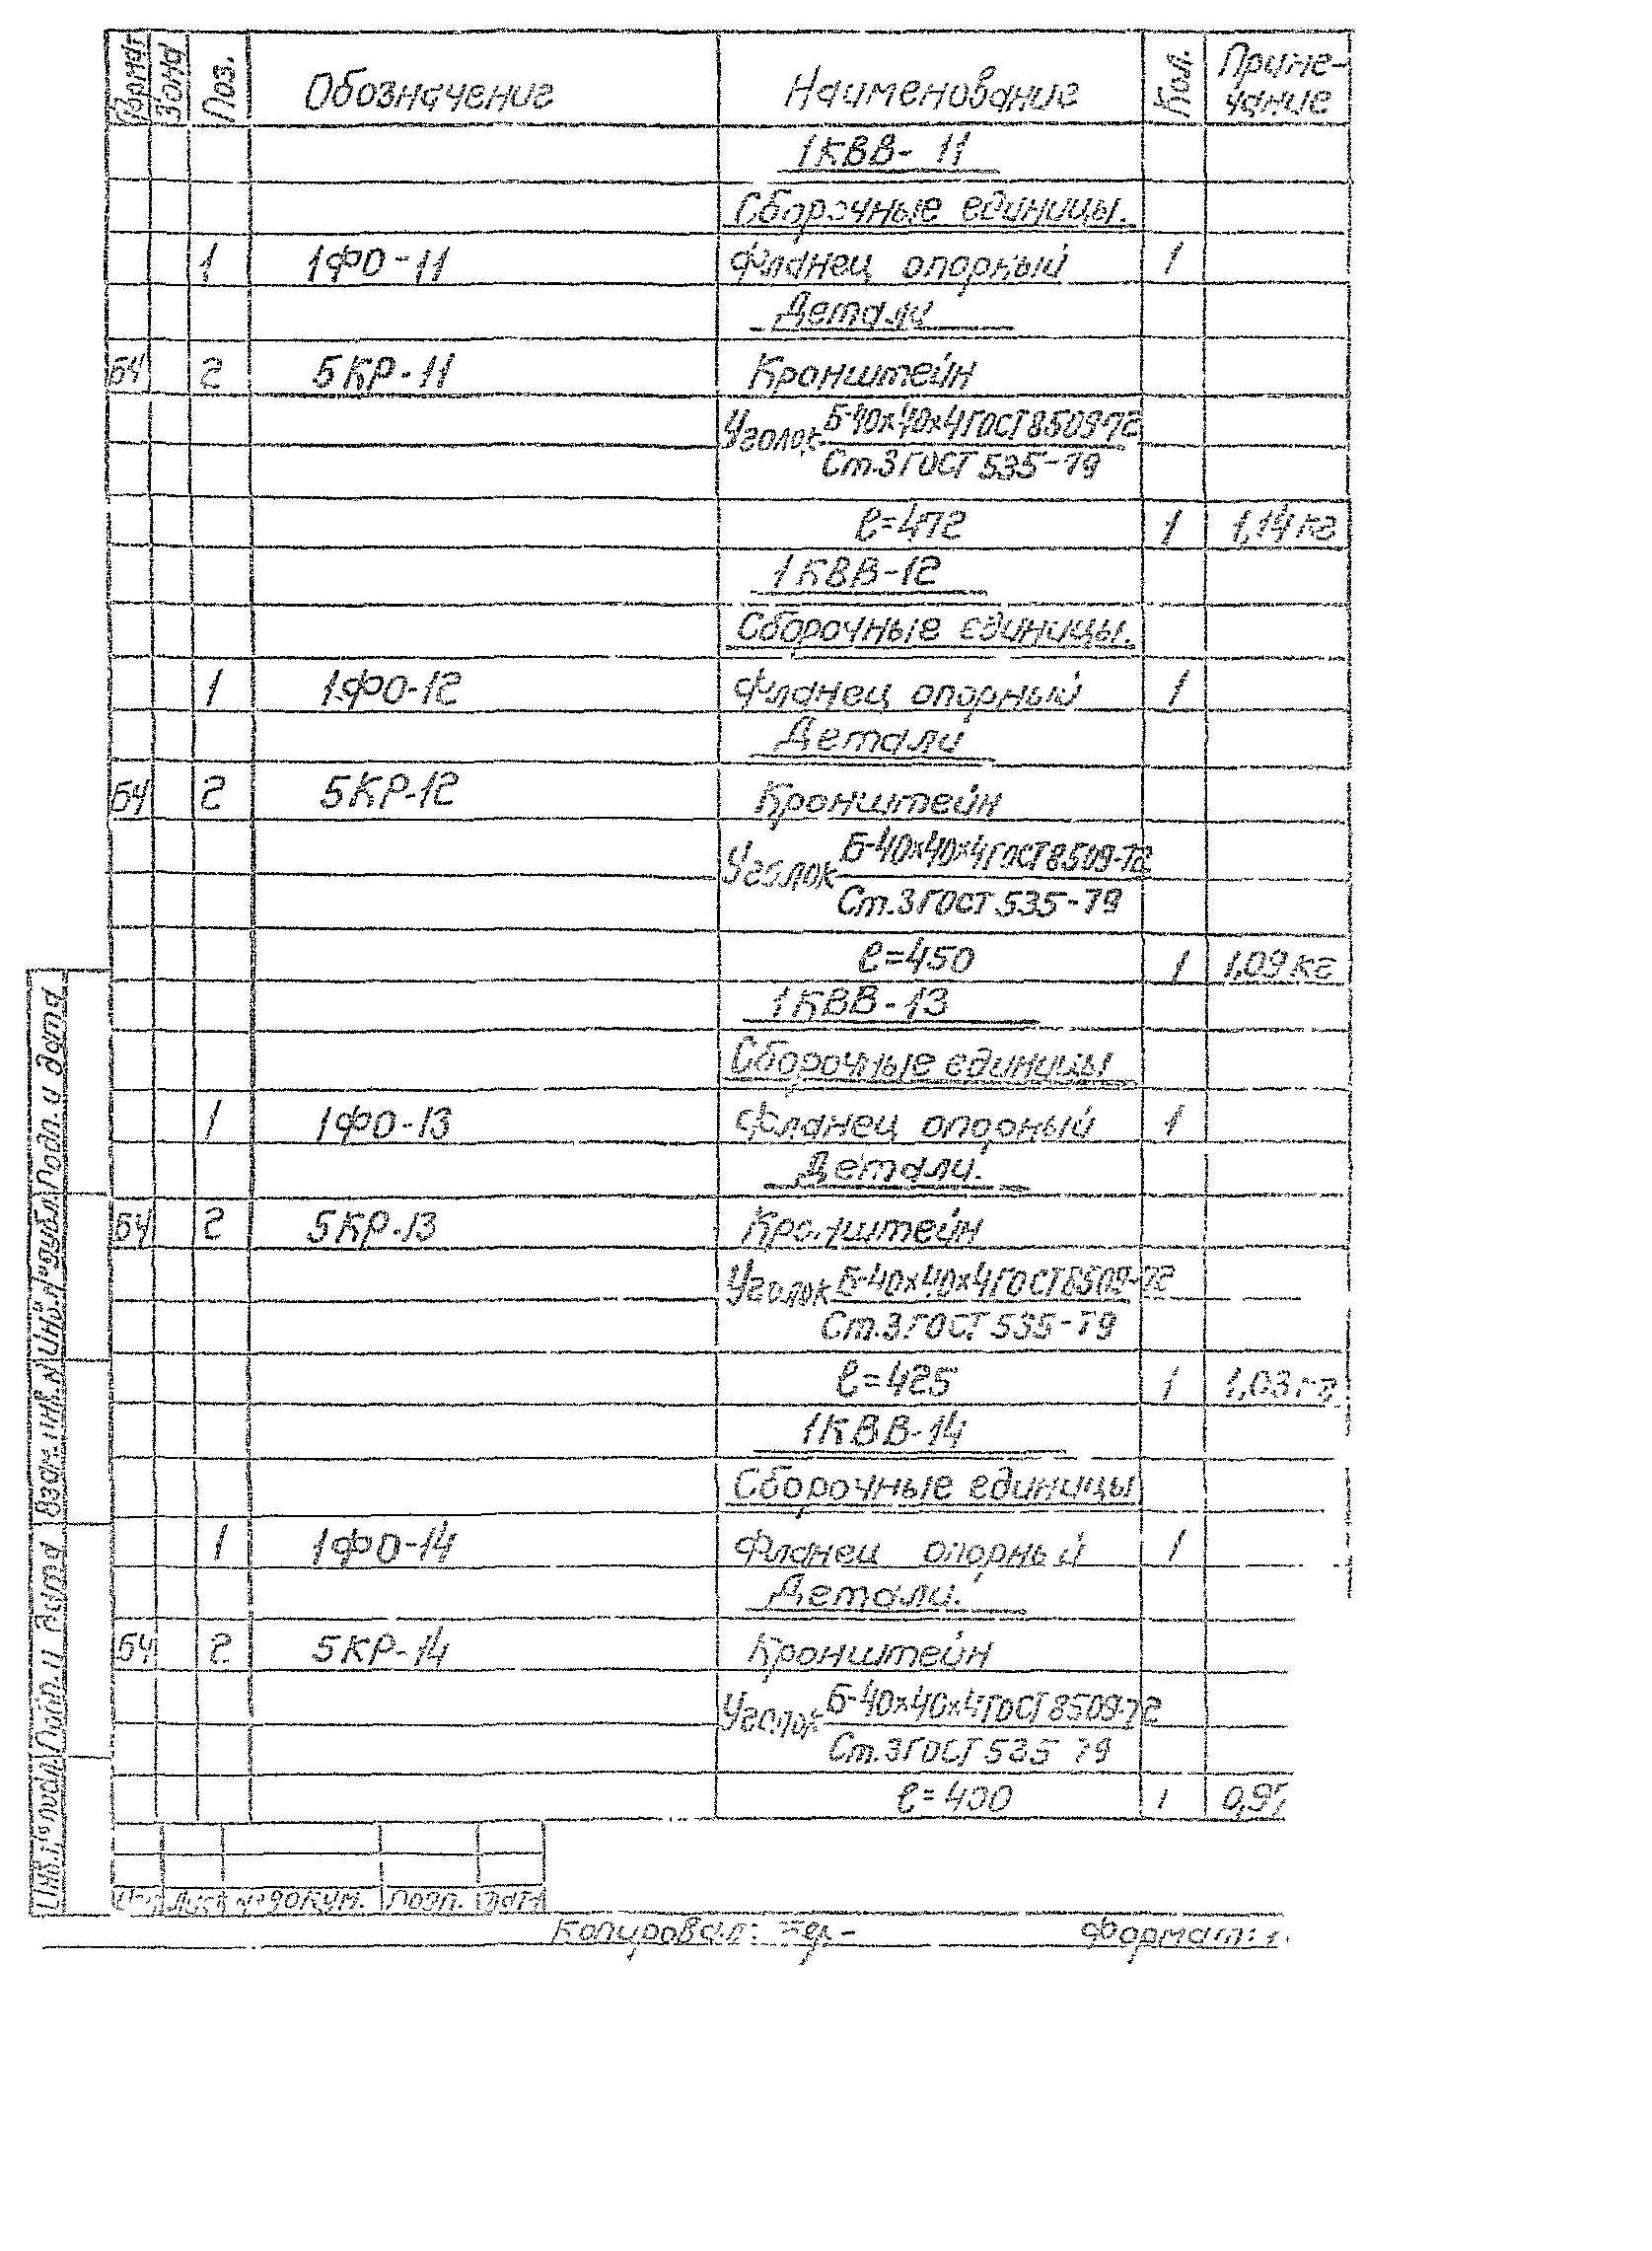 Формат Зона Поз. Обозначение Наименование Кол. Приме-
чание
1КВВ-11
Сборочные единицы.
1 1ФО-11 Фланец опорный 1
Детали
БЧ 2 5КР-11 Кронштейн
Уголок Б-40х40х4 ГОСТ 8509-72
Ст.3 ГОСТ 535-79
ℓ=472 1 1,14 кг
1КВВ-12
Сборочные единицы.
1 1ФО-12 Фланец опорный 1
Детали
БЧ 2 5КР-12 Кронштейн
Уголок Б-40х40х4 ГОСТ 8509-72
Ст.3 ГОСТ 535-79
ℓ=450 1 1,09 кг
1КВВ-13
Сборочные единицы
1 1ФО-13 Фланец опорный 1
Детали.
БЧ 2 5КР-13 Кронштейн
Уголок Б-40х40х4 ГОСТ 8509-72
Ст.3 ГОСТ 535-79
ℓ=425 1 1,03 кг
1КВВ-14
Сборочные единицы
1 1ФО-14 Фланец опорный 1
Детали.
БЧ 2 5КР-14 Кронштейн
Уголок Б-40х40х4 ГОСТ 8509-72
Ст.3 ГОСТ 535-79
ℓ=400 1
Лист № докум. Подп. Дата
Копировал: Формат:
Инв.№ подл. Подп. и дата Взам. инв. № Инв.№ дубл. Подп. и дата